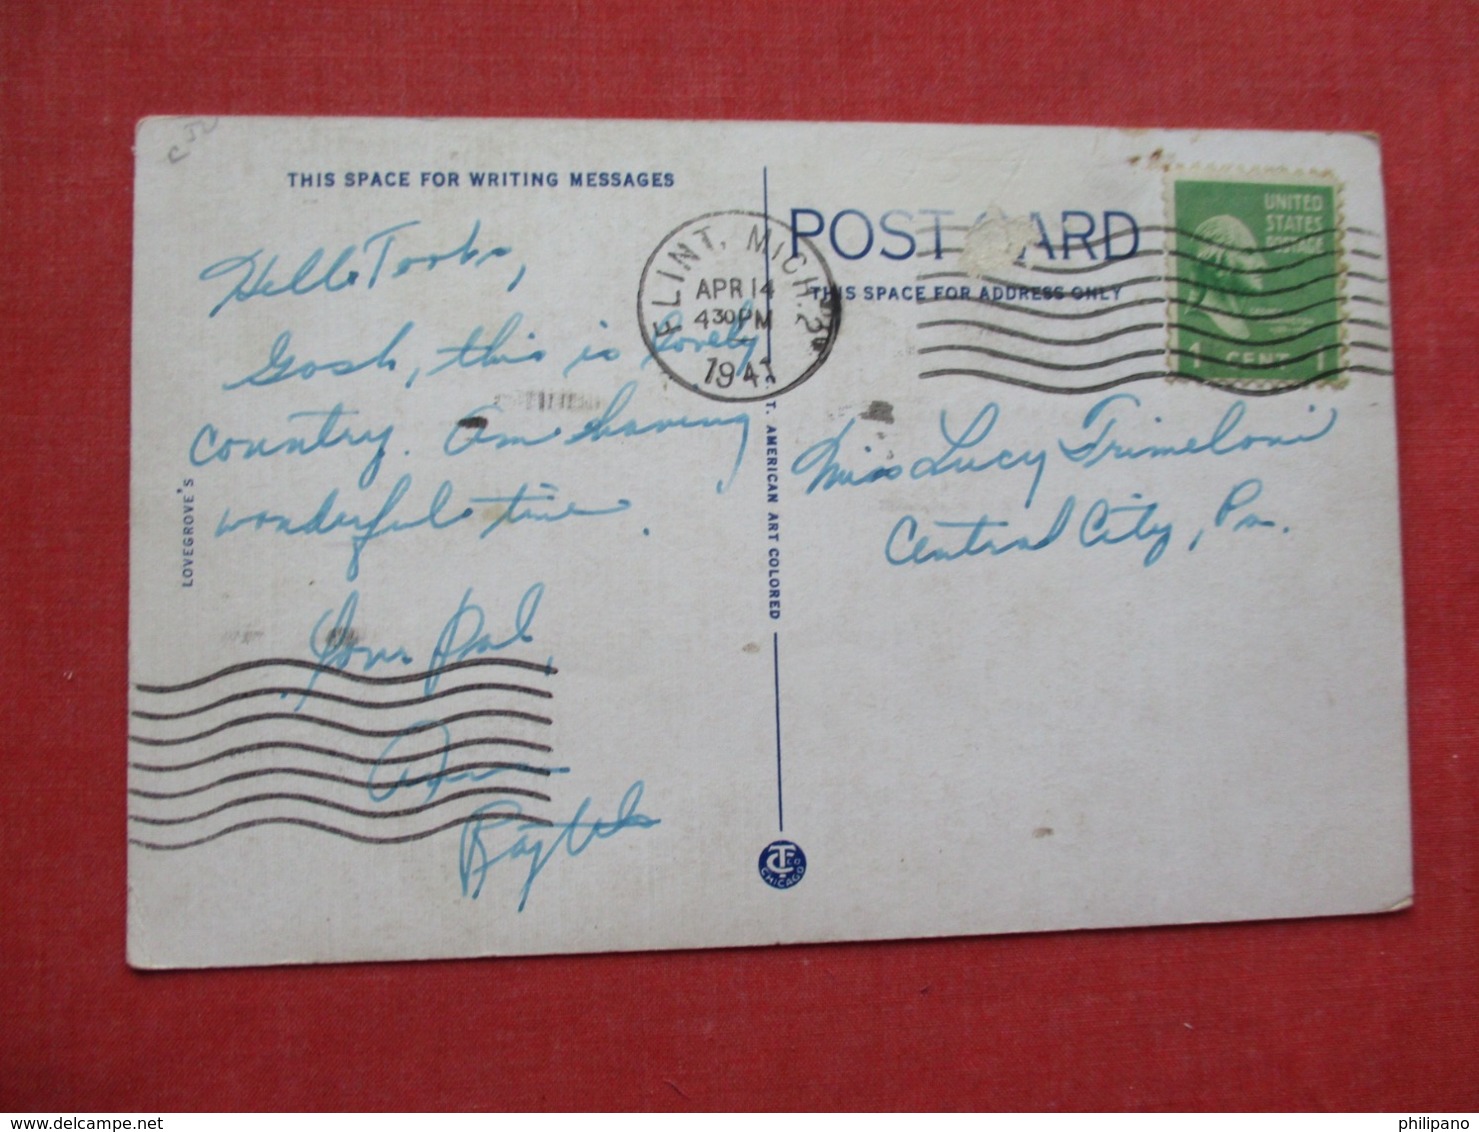 THIS SPACE FOR WRITING MESSAGES
Hello Toots,
Gosh, this is lovely
country. Am having
wonderful time.
Your Pal,
LOVEGROVE'S
FLINT, MICH. 2
APR 14
4 30 PM
1941
C. T. AMERICAN ART COLORED
CHICAGO
POST CARD
THIS SPACE FOR ADDRESS ONLY
UNITED
STATES
POSTAGE
1 CENT 1
Miss Lucy Trimeloni
Central City, Pa.
philipano